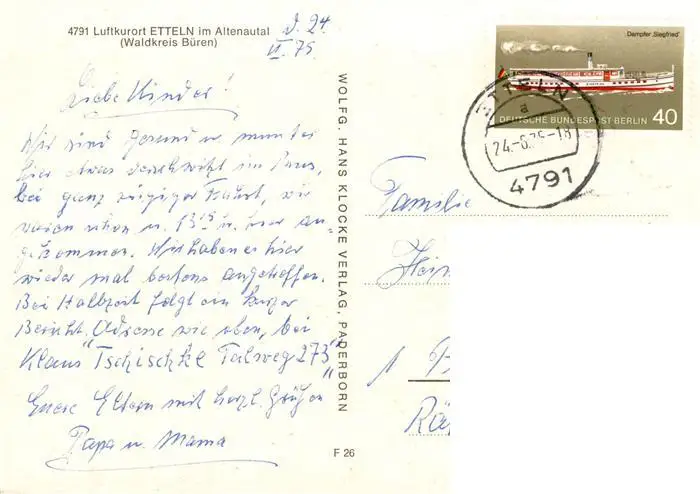 4791 Luftkurort ETTELN im Altenautal
(Waldkreis Büren)
d. 24
VI. 75
Liebe Kinder!
Wir sind gesund u. munter
hier etwas verschwitzt im Haus,
bei ganz zügiger Fahrt, wir
waren schon u. 13 15 u. hier an-
gekommen. Wir haben es hier
wieder mal bestens angetroffen.
Bei Halbzeit folgt ein kurzer
Bericht. Adresse wie oben, bei
Klaus "Tschischke Talweg 273"
Eure Eltern mit herzl. Grüßen
Papa u. Mama
WOLFG. HANS KLOCKE VERLAG, PADERBORN
F 26
Dampfer „Siegfried"
DEUTSCHE BUNDESPOST BERLIN 40
ETTELN
a
24.-6.75-18
4791
Familie
Hein
1
Rä